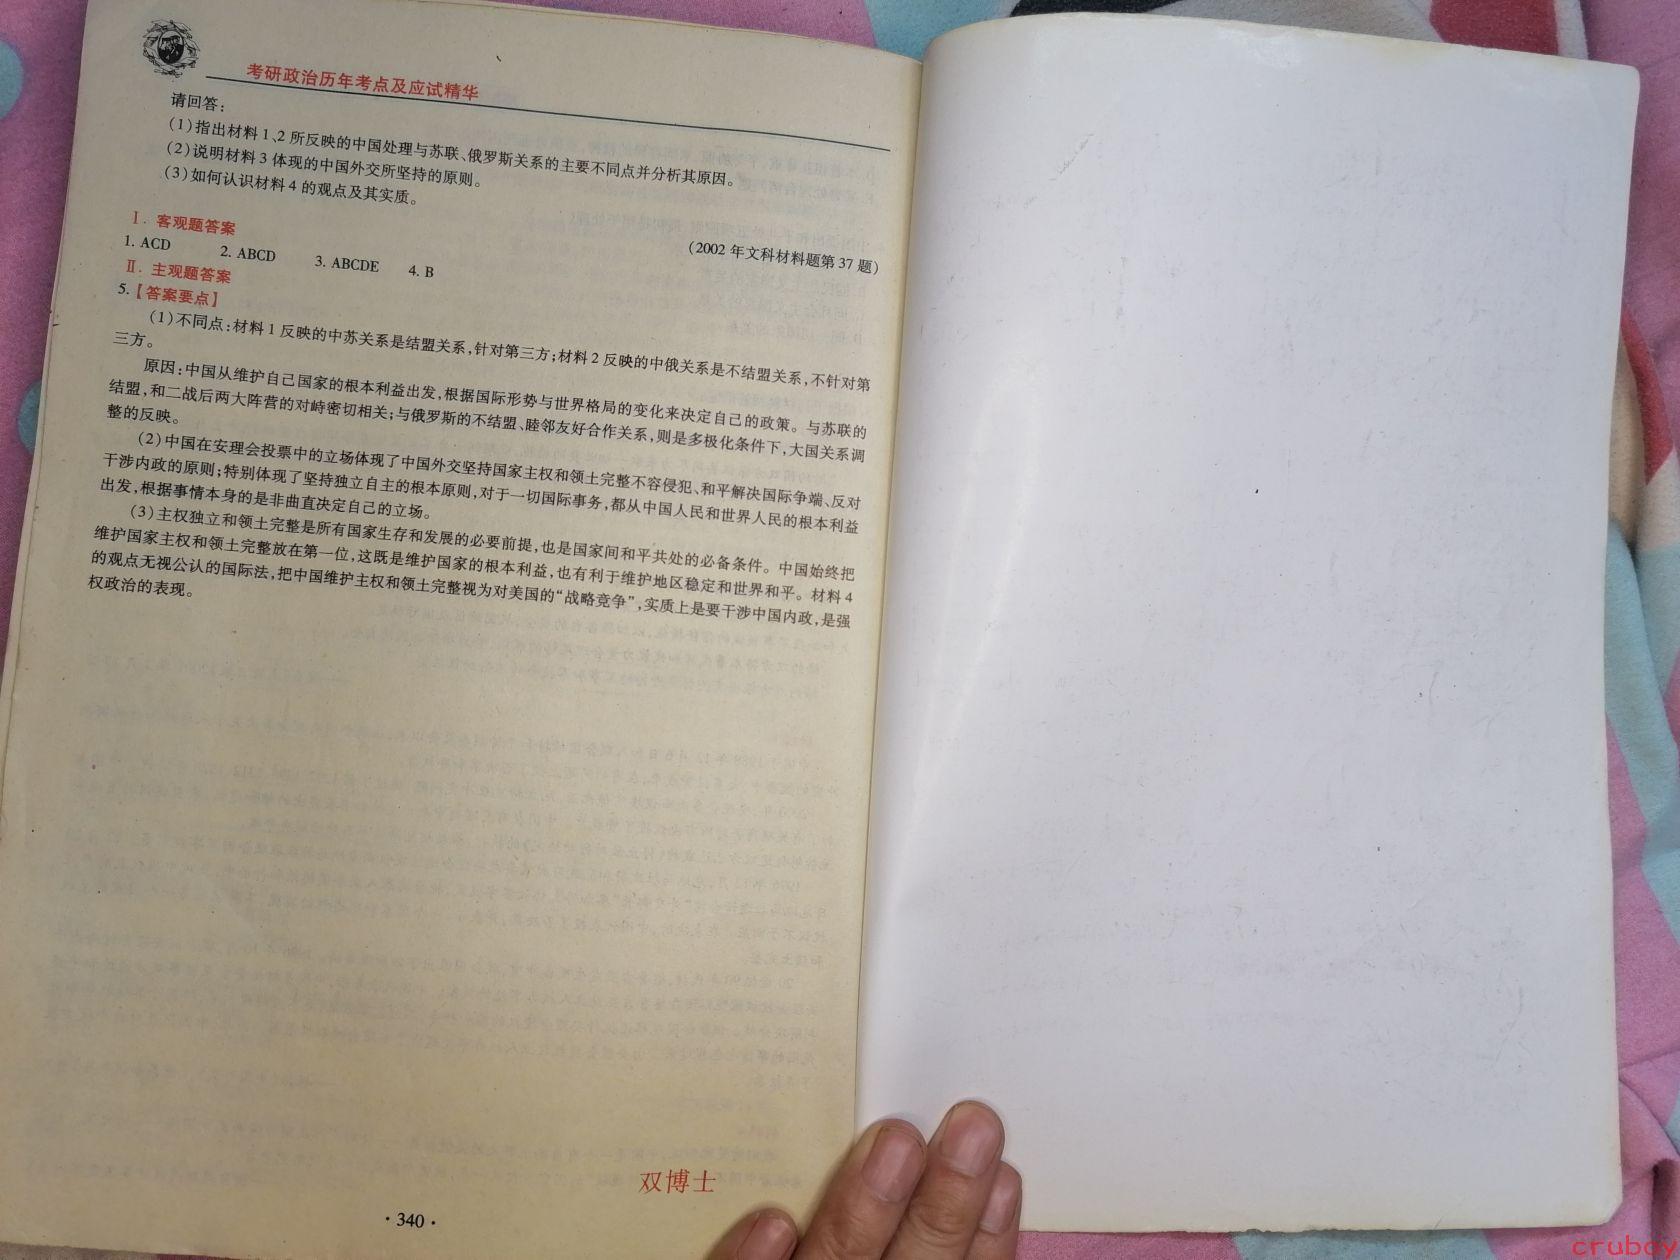 考研政治历年考点及应试精华
请回答：
(1)指出材料1、2所反映的中国处理与苏联、俄罗斯关系的主要不同点并分析其原因。
(2)说明材料3体现的中国外交所坚持的原则。
(3)如何认识材料4的观点及其实质。
(2002年文科材料题第37题)
Ⅰ. 客观题答案
1. ACD 2. ABCD 3. ABCDE 4. B
Ⅱ. 主观题答案
5.【答案要点】
(1)不同点：材料1反映的中苏关系是结盟关系，针对第三方；材料2反映的中俄关系是不结盟关系，不针对第
三方。
原因：中国从维护自己国家的根本利益出发，根据国际形势与世界格局的变化来决定自己的政策。与苏联的
结盟，和二战后两大阵营的对峙密切相关；与俄罗斯的不结盟、睦邻友好合作关系，则是多极化条件下，大国关系调
整的反映。
(2)中国在安理会投票中的立场体现了中国外交坚持国家主权和领土完整不容侵犯、和平解决国际争端、反对
干涉内政的原则；特别体现了坚持独立自主的根本原则，对于一切国际事务，都从中国人民和世界人民的根本利益
出发，根据事情本身的是非曲直决定自己的立场。
(3)主权独立和领土完整是所有国家生存和发展的必要前提，也是国家间和平共处的必备条件。中国始终把
维护国家主权和领土完整放在第一位，这既是维护国家的根本利益，也有利于维护地区稳定和世界和平。材料4
的观点无视公认的国际法，把中国维护主权和领土完整视为对美国的“战略竞争”，实质上是要干涉中国内政，是强
权政治的表现。
双博士
·340·
cruboy